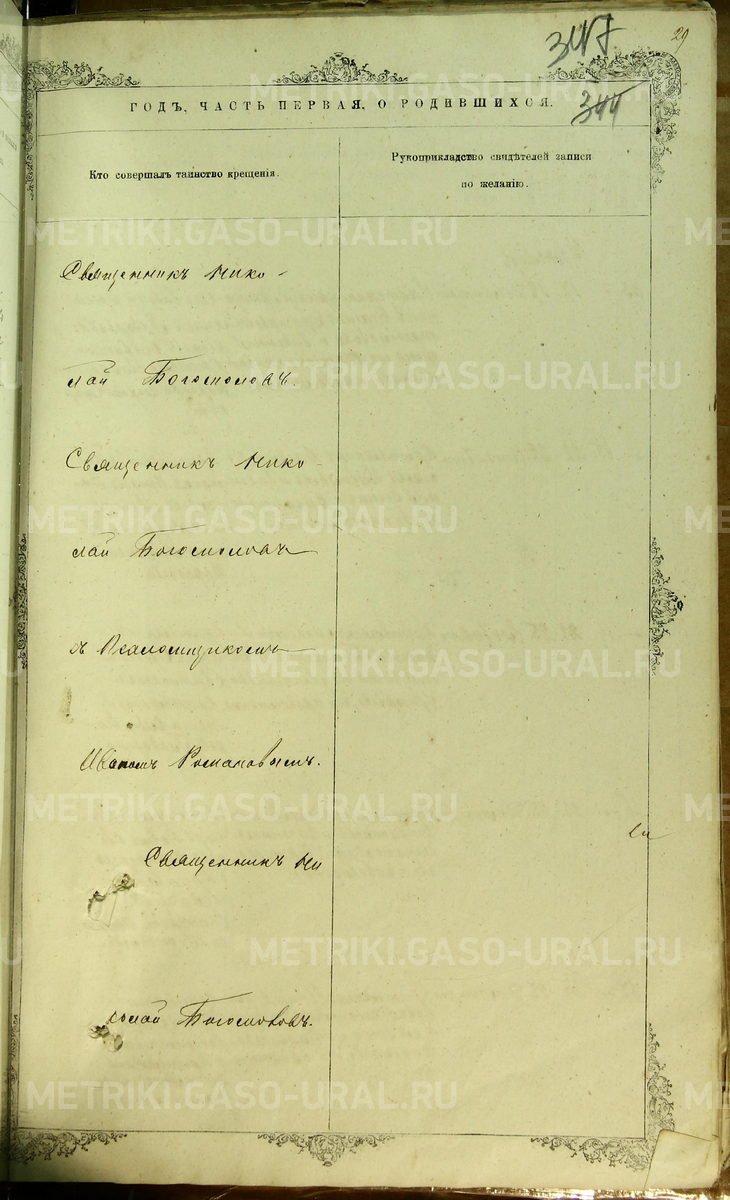 347
29
344
ГОДЪ, ЧАСТЬ ПЕРВАЯ, О РОДИВШИХСЯ.
Кто совершалъ таинство крещенія.
Рукоприкладство свидѣтелей записи
по желанію.
Священникъ Нико-
лай Богомоловъ.
Священникъ Нико-
лай Богомоловъ
съ Псаломщикомъ
Иваномъ Романовымъ.
Священникъ Ни
колай Богомоловъ.
METRIKI.GASO-URAL.RU